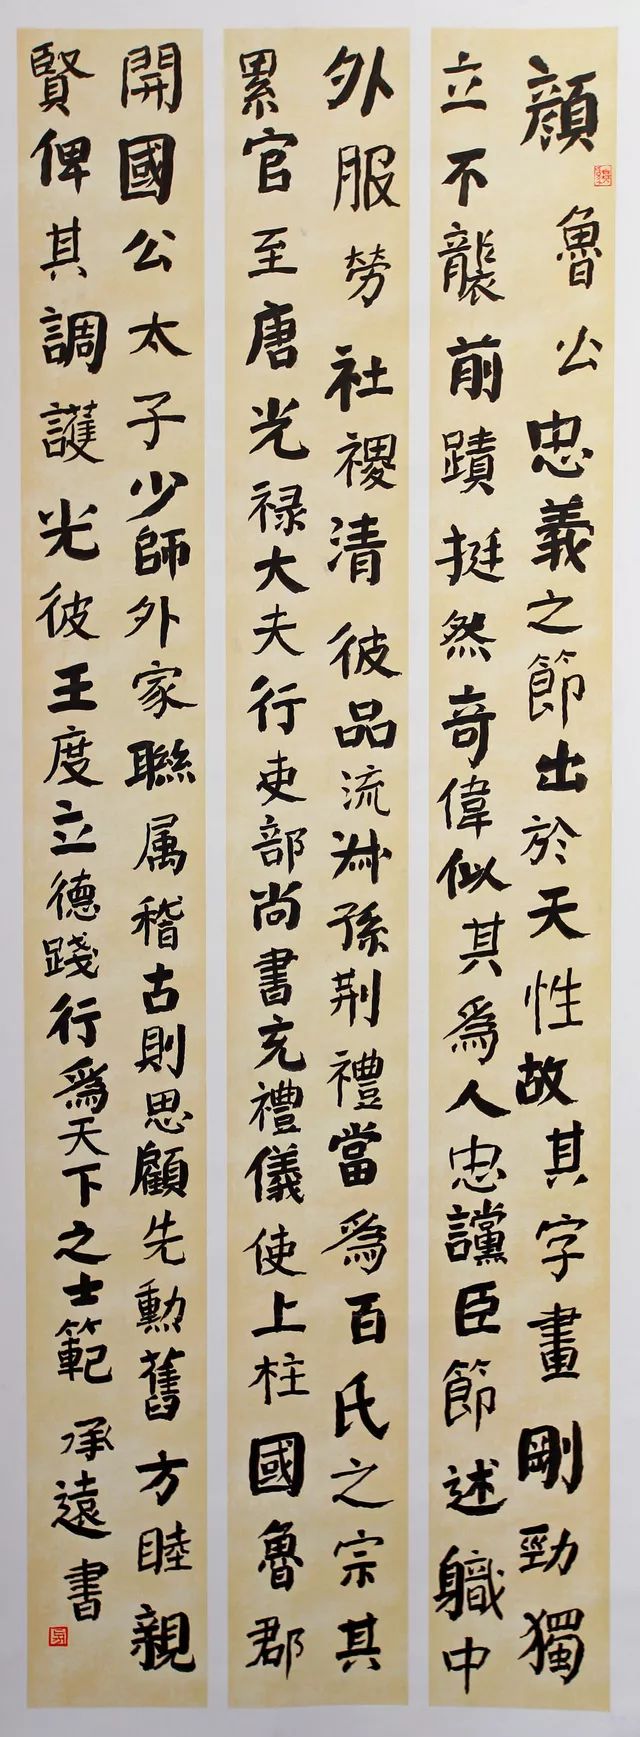 顔魯公忠義之節出於天性故其字畫剛勁獨
立不襲前蹟挺然奇偉似其爲人忠讜臣節述職中
外服勞社稷清彼品流叔孫制禮當爲百氏之宗其
累官至唐光禄大夫行吏部尚書充禮儀使上柱國魯郡
開國公太子少師外家聯属稽古則思顧先勳舊方睦親
賢俾其調護光彼王度立德踐行爲天下之士範 承遠書